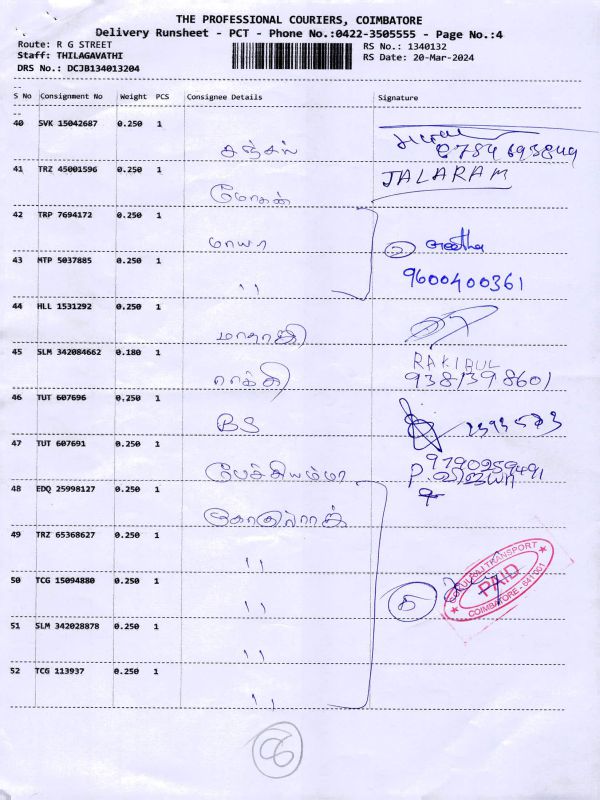 THE PROFESSIONAL COURIERS, COIMBATORE
Delivery Runsheet - PCT - Phone No.:0422-3505555 - Page No.:4
Route: R G STREET
RS No.: 1340132
Staff: THILAGAVATHI
RS Date: 20-Mar-2024
DRS No.: DCJB134013204
S No Consignment No Weight PCS Consignee Details Signature
40 SVK 15042687 0.250 1 சஞ்சய்
41 TRZ 45001596 0.250 1 மோகன் JALARAM
42 TRP 7694172 0.250 1 மாயா
43 MTP 5037885 0.250 1 '' 9600400361
44 HLL 1531292 0.250 1
45 SLM 342084662 0.180 1 ராக்கி RAKIBUL
9381398601
46 TUT 607696 0.250 1 BS
47 TUT 607691 0.250 1 பேச்சியம்மா 9790259491
P. விஜயா
48 EDQ 25998127 0.250 1
49 TRZ 65368627 0.250 1 ''
50 TCG 15094880 0.250 1 ''
GOKULANJI TRANSPORT
PAID
COIMBATORE - 641001
51 SLM 342028878 0.250 1 ''
52 TCG 113937 0.250 1 ''